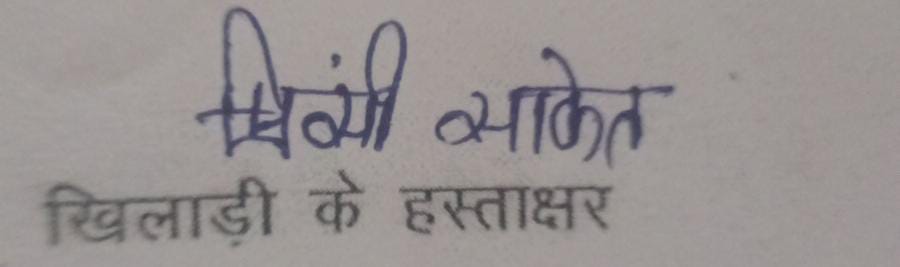 साकेत
खिलाड़ी के हस्ताक्षर